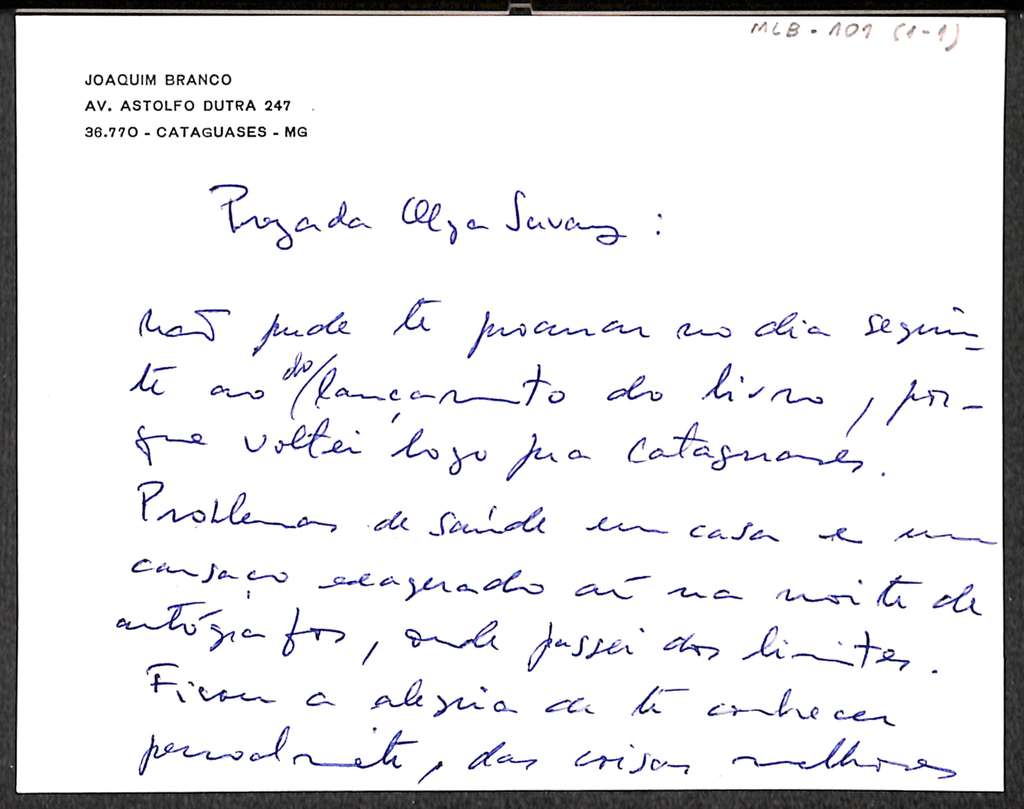 MLB - 101 (1-1)
JOAQUIM BRANCO
AV. ASTOLFO DUTRA 247
36.770 - CATAGUASES - MG
Prezada Olga Savary :
Não pude te procurar no dia seguin-
te ao do lançamento do livro, por-
que voltei logo pra Cataguases.
Problemas de saúde em casa e um
cansaço exagerado aí na noite de
autógrafos, onde passei dos limites.
Ficou a alegria de te conhecer
pessoalmente, das coisas melhores